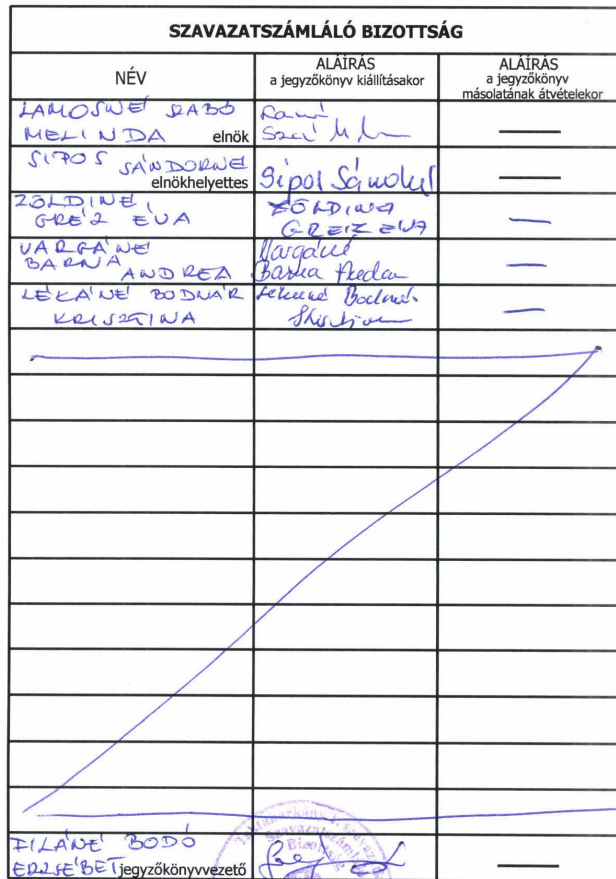 SZAVAZATSZÁMLÁLÓ BIZOTTSÁG
NÉV
ALÁÍRÁS
a jegyzőkönyv kiállításakor
ALÁÍRÁS
a jegyzőkönyv
másolatának átvételekor
LAMOSNÉ SZABÓ
MELINDA elnök
SIPOS SÁNDORNÉ
elnökhelyettes
Sipos Sándorné
ZÖLDINÉ
GREIZ ÉVA
ZÖLDINÉ
GREIZ ÉVA
VARGÁNÉ
BARNA
ANDREA
Vargáné
Barna Andrea
LÉKÁNÉ BODNÁR
KRISZTINA
Lékáné Bodnár
Krisztina
FILÁNÉ BODÓ
ERZSÉBET jegyzőkönyvvezető
Szavazatszámláló
Bizottság